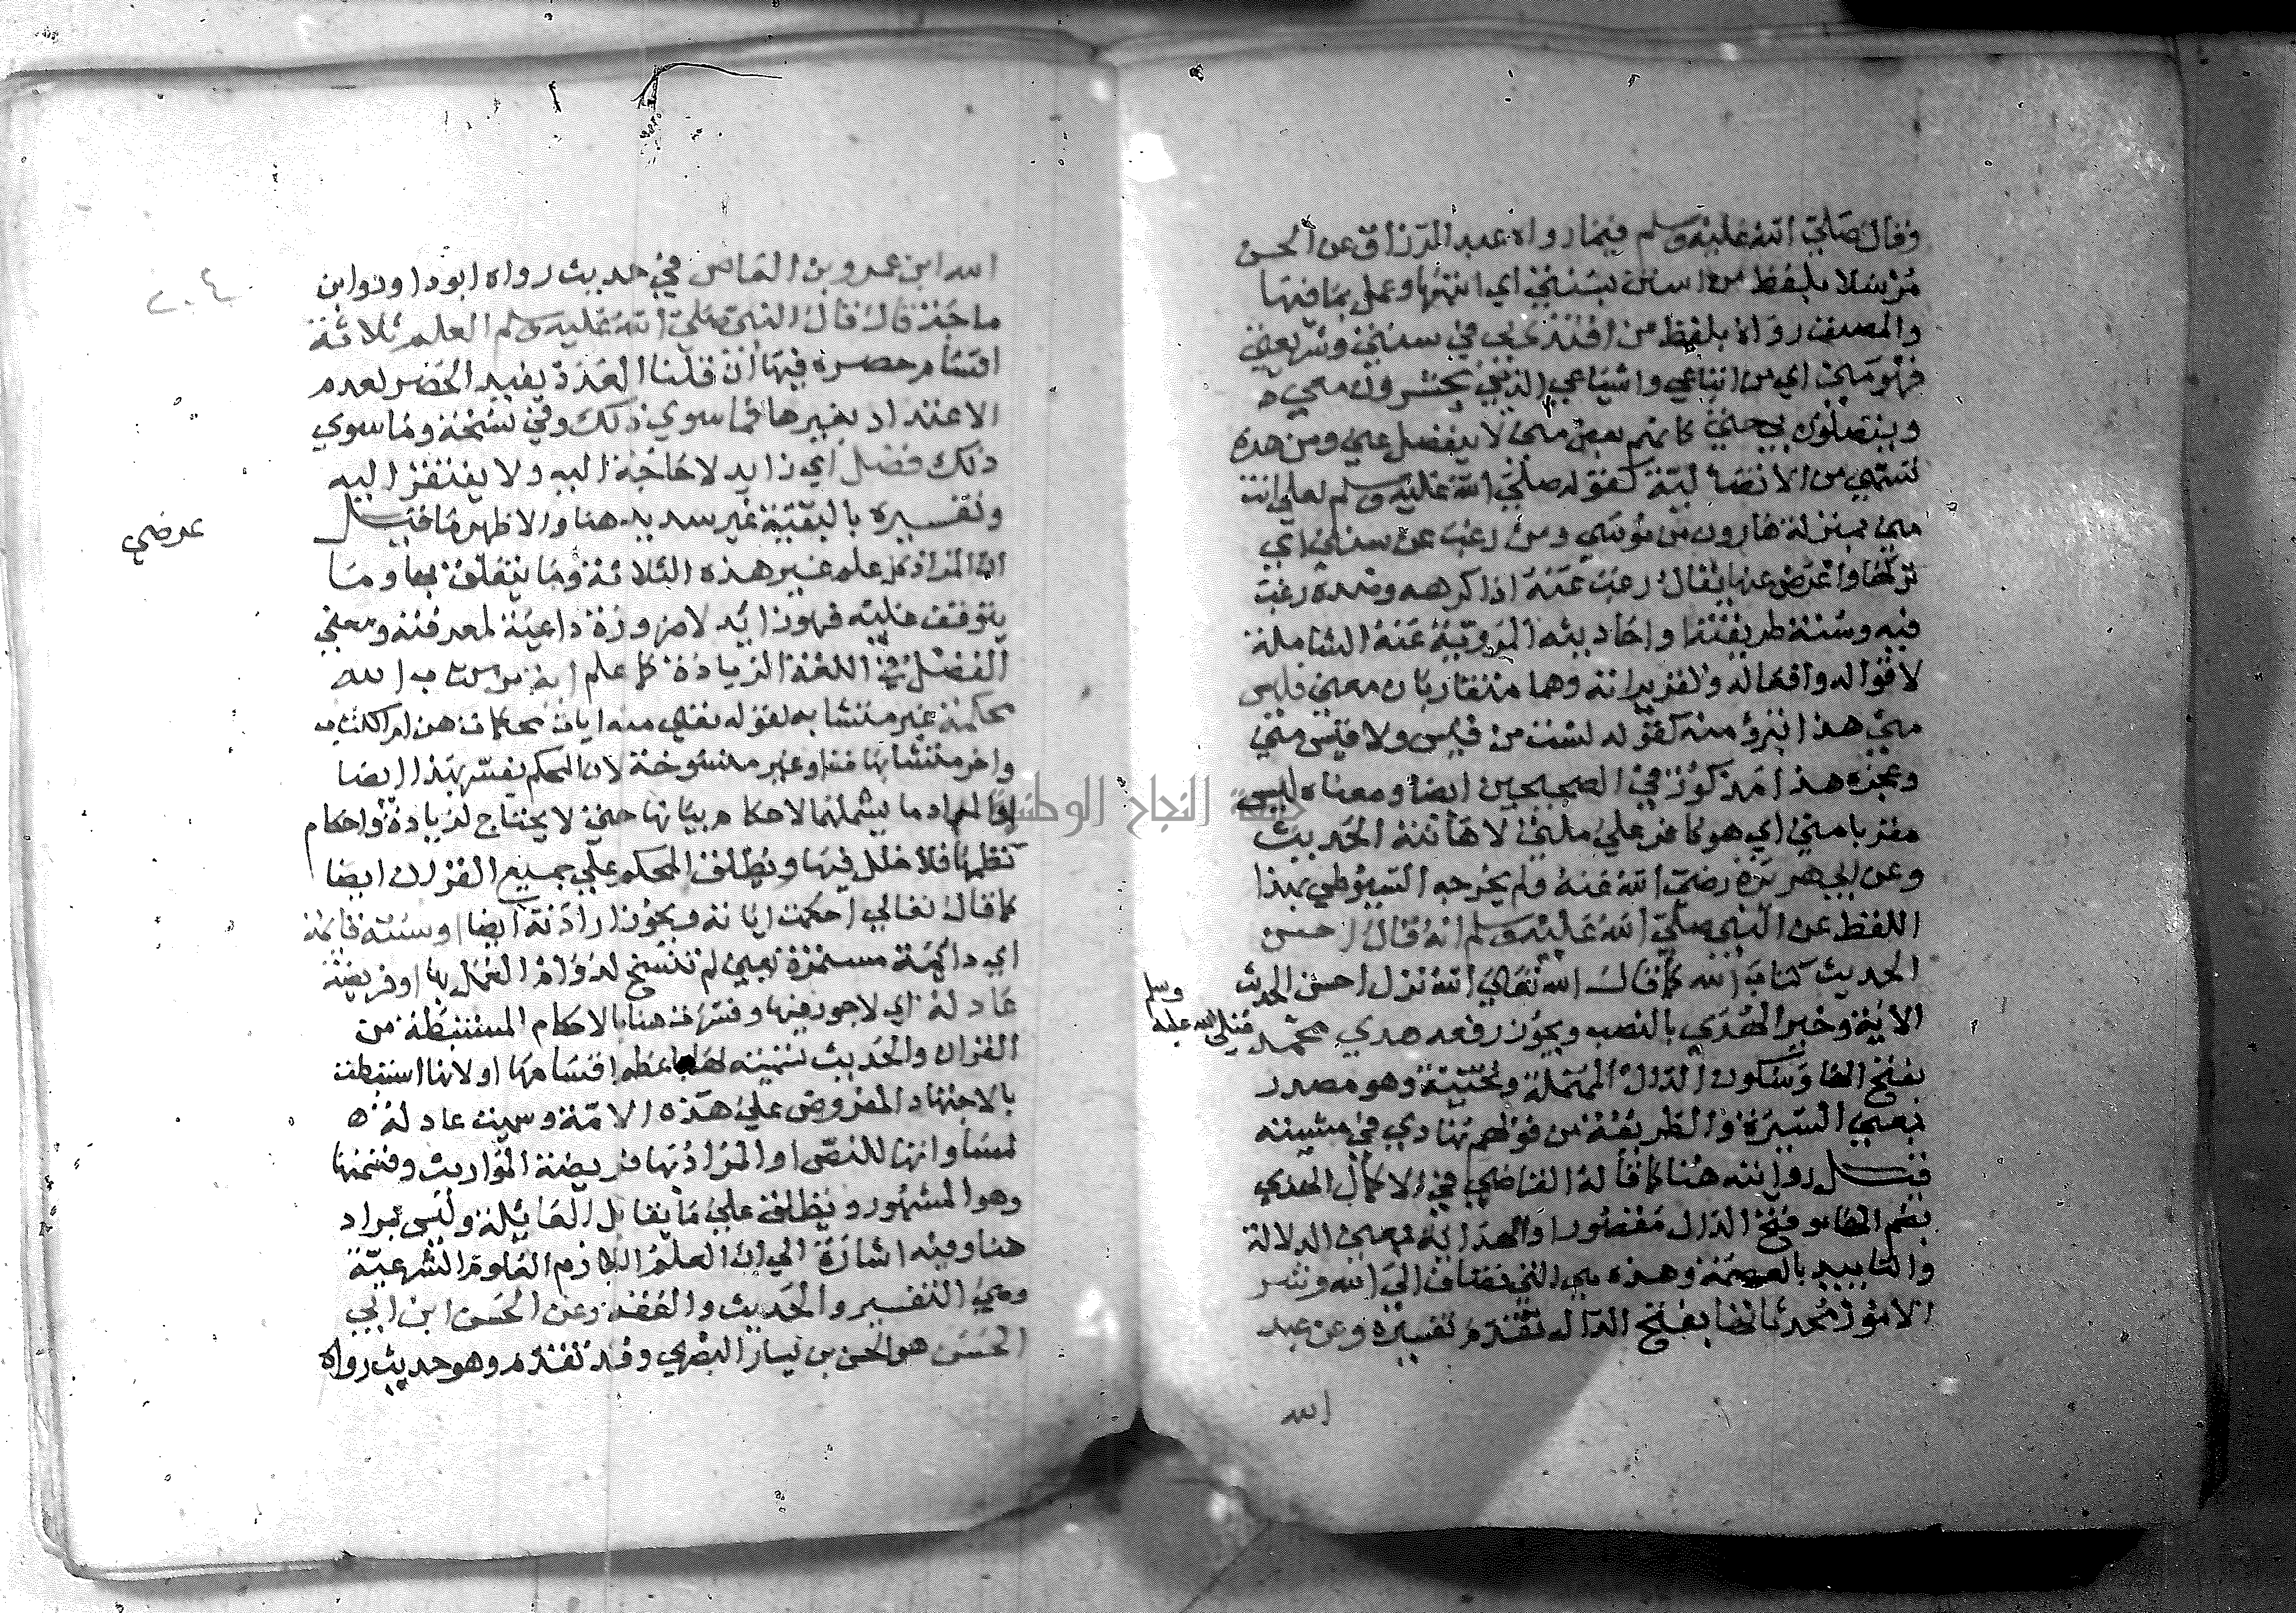 وقال صلي الله عليه وسلم فيما رواه عبد الرزاق عن الحسن
مرسلا بلفظ من استن بسنتي اي انتهي وعمل بما فيها
والمصنف رواه بلفظ من اقتدي بي في سنتي وشريعتي
فهو مني اي من اتباعي واشياعي الذين يحشرون معي
ويتصلون بي حتي كانهم بعض مني لا ينفصل عني ومن هذه
تسمي من الاتصالية كقوله صلي الله عليه وسلم لعلي انت
مني بمنزلة هارون من موسي ومن رغب عن سنتي اي
تركها واعرض عنها يقال رغب عنه اذا كرهه وضده رغب
فيه وسنته طريقته واحاديثه المروية عنه الشاملة
لاقواله وافعاله وتقريراته وهما متقاربان معني فليس
مني هذا تبرؤ منه كقوله لست من قيس ولا قيس مني
وعجزه هذا مذكور في الصحيحين ايضا ومعناه ليس
مقر بامتي اي هو كافر علي ملتي لاهانته الحديث
وعن ابي هريرة رضي الله عنه ولم يخرجه السيوطي بهذا
اللفظ عن النبي صلي الله عليه وسلم انه قال احسن
الحديث كتاب الله كما قال الله تعالي الله نزل احسن الحديث
الاية وخير الهدي بالنصب ويجوز رفعه هدي محمد صلي الله عليه وسلم
بفتح الها وسكون الدال المهملة وتحتية وهو مصدر
بمعني السيرة والطريقة من قولهم تهادي في مشيته
قيل روايته هنا كما قاله القاضي في الاكمال الهدي
بضم الها وفتح الدال مقصورا والهداية بمعني الدلالة
والتاييد بالعصمة وهذه هي التي تضاف الي الله وشر
الامور محدثاتها بفتح الدال تقدم تفسيره وعن عبد
الله
الله ابن عمرو بن العاص في حديث رواه ابو داود وابن
ماجة قال قال النبي صلي الله عليه وسلم العلم ثلاثة
اقسام حصره فيها ان قلنا العدد يفيد الحصر لعدم
الاعتداد بغيرها فما سوي ذلك وفي نسخة وما سوي
ذلك فضل اي زايد لا حاجة اليه ولا يفتقر اليه
وتفسيره بالبقية غير سديد هنا والاظهر ما قيل
ان المراد كل علم غير هذه الثلاثة وما يتعلق بها وما
يتوقف عليه فهو زائد لا ضرورة داعية لمعرفته ومعني
الفضل في اللغة الزيادة كما علم اية من كتاب الله
محكمة غير متشابه لقوله تعالي منه ايات محكمات هن ام الكتاب
واخر متشابهات او غير منسوخة لان المحكم يفسر بهذا ايضا
او المراد ما يشملهما لاحكام بيانها حتي لا يحتاج لزيادة واحكام
نظمها فلا خلل فيها ويطلق المحكم علي جميع القران ايضا
كما قال تعالي احكمت اياته ويجوز ارادته ايضا او سنة قائمة
اي دائمة مستمرة بمعني لم تنسخ لدوام العمل بها او فريضة
عادلة اي لا جور فيها وفسرت هنا بالاحكام المستنبطة من
القران والحديث تسمية لها باعظم اقسامها او لانها استنبطت
بالاجتهاد المفروض علي هذه الامة وسميت عادلة
لمساواتها للنص او المراد بها فريضة المواريث وقسمتها
وهو المشهور ويطلق علي ما يقابل العائلة وليس بمراد
هنا وفيه اشارة الي ان العلم اللازم العلوم الشرعية
وهي التفسير والحديث والفقه وعن الحسن ابن ابي
الحسن هو الحسن بن يسار البصري وقد تقدم وهو حديث رواه
٢٠٤